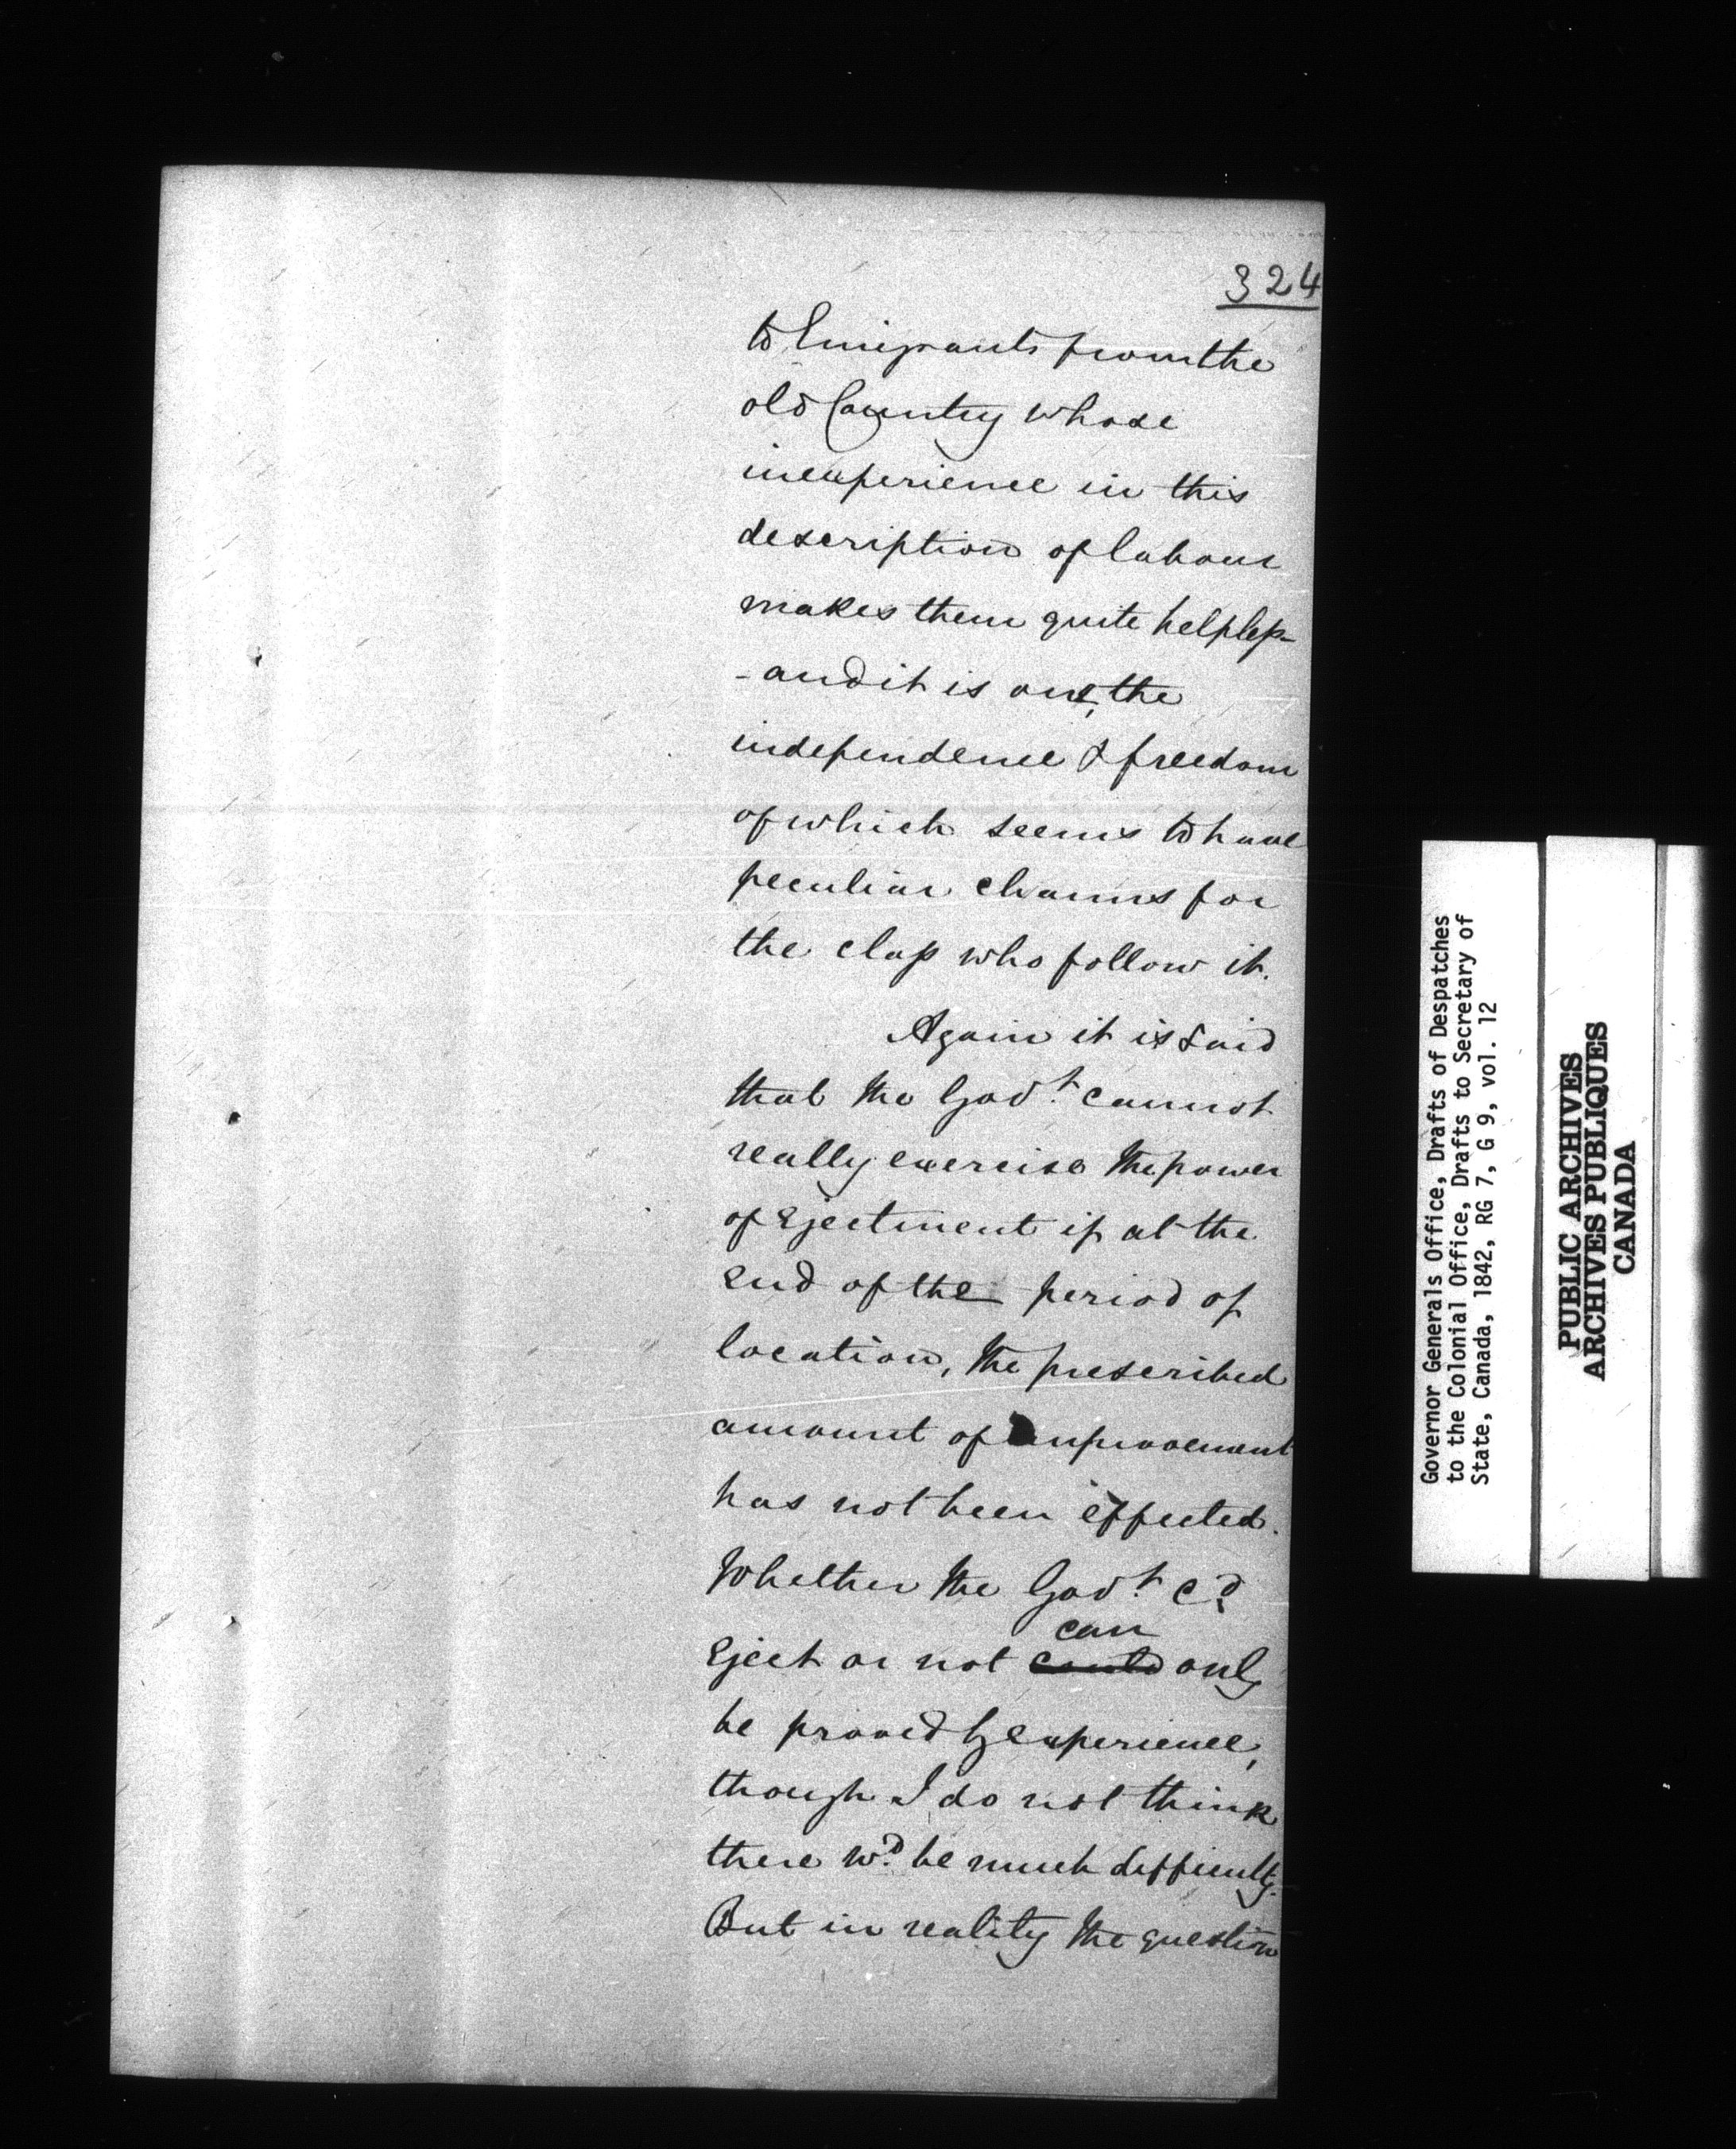 324
to Emigrants from the
old Country whose
inexperience in this
description of labour
makes them quite helpless
- and it is one, the
independence & freedom
of which seems to have
peculiar charms for
the class who follow it.
Again it is said
that the Gov.t cannot
really exercise the power
of ejectment if at the
end of the period of
location, the prescribed
amount of improvement
has not been effected.
Whether the Gov.t c.d
can
eject or not could only
be proved by experience,
though I do not think
there w.d be much difficulty.
But in reality the question
Governor Generals Office, Drafts of Despatches
to the Colonial Office, Drafts to Secretary of
State, Canada, 1842, RG 7, G 9, vol. 12
PUBLIC ARCHIVES
ARCHIVES PUBLIQUES
CANADA